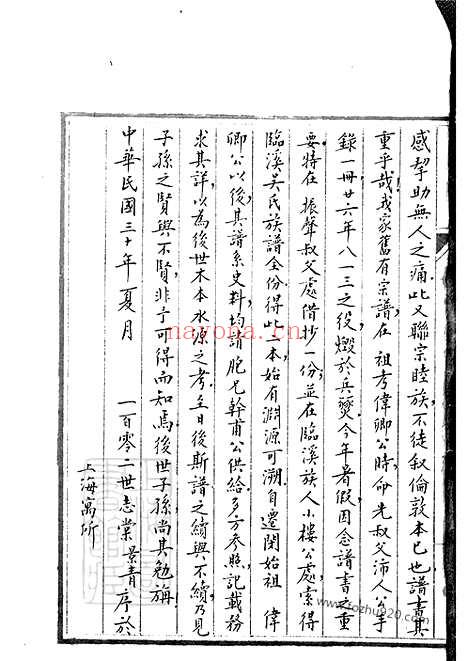 感挈助無人之痛此又聯宗睦族不徒叙倫敦本已也譜書其
重乎哉我家舊有宗譜在 祖考偉卿公時命先叔父沛人公手
錄一冊廿六年八一三之役燬於兵燹今年暑假因念譜書之重
要特在 振聲叔父處借抄一份並在臨溪族人小樓公處索得
臨溪吳氏族譜全份得此二本始有淵源可溯自遷閔始祖 偉
卿公以後其譜系史料均請胞兄幹甫公供給多方參照記載務
求其詳以為後世木本水源之考至日後斯譜之續與不續乃見
子孫之賢與不賢非予可得而知焉後世子孫尚其勉旃
中華民國三十年夏月 一百零二世志棠景青序於
上海寓所
nayona.cn
www.rozhu920.com